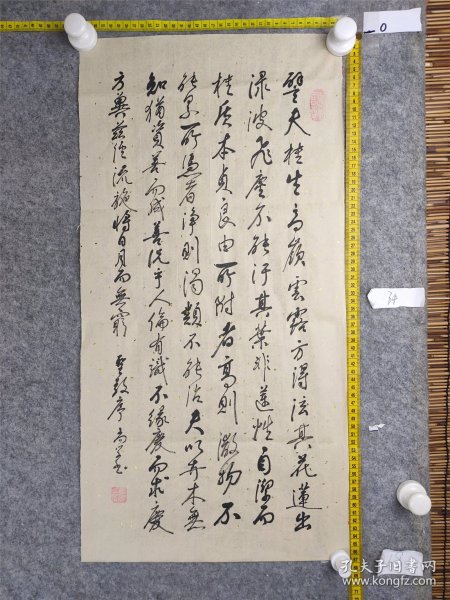 譬夫桂生高嶺雲露方得泫其花蓮出
淥波飛塵不能汙其葉非蓮性自潔而
桂质本貞良由所附者高則微物不
能累所憑者淨則濁類不能沾夫以卉木無
知猶資善而成善況乎人倫有識不緣慶而求慶
方冀兹經流施將日月而無窮 聖教序
0
34
孔夫子旧书网
www.kongfz.com